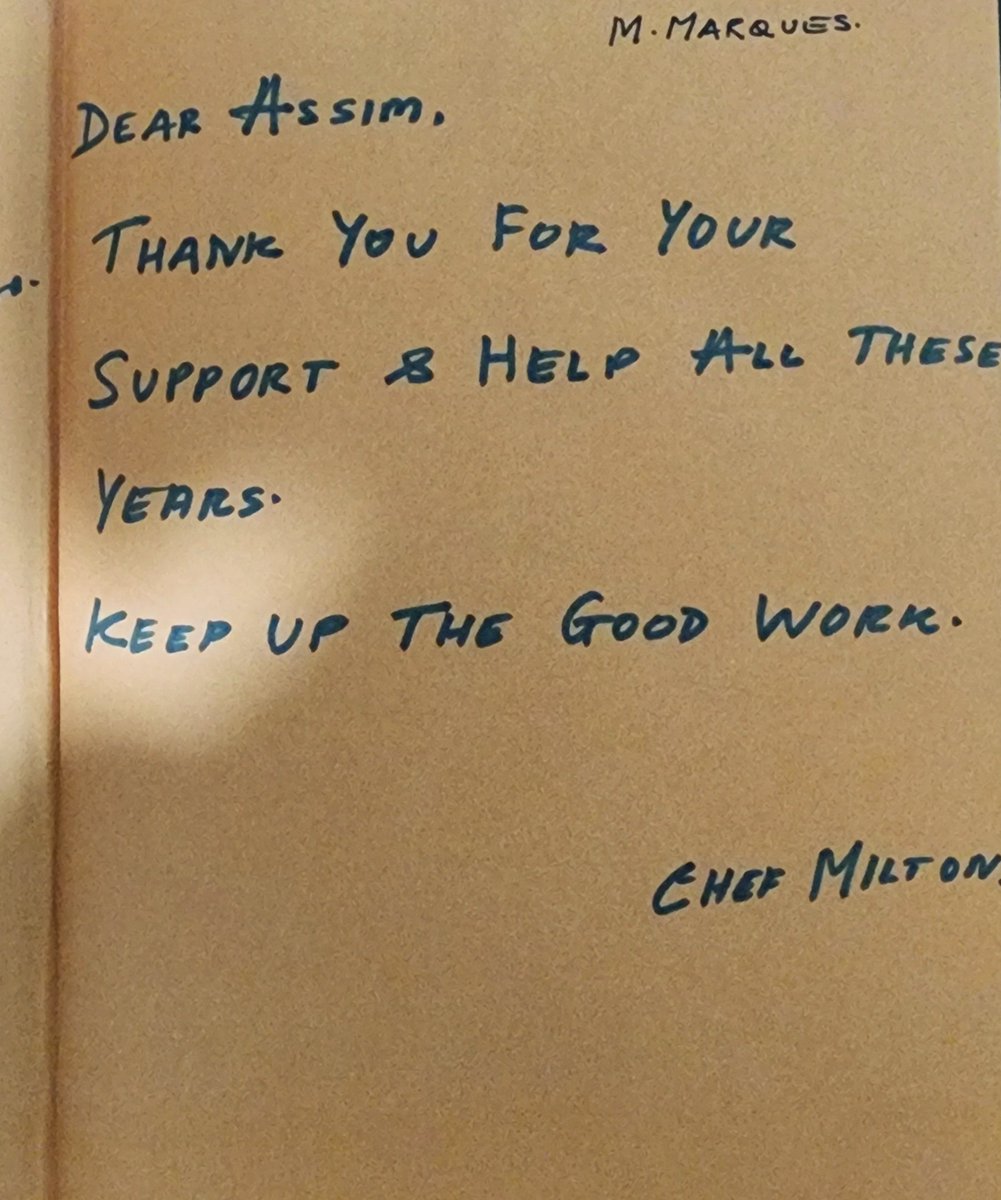 M. MARQUES.
DEAR ASSIM.
THANK YOU FOR YOUR
SUPPORT & HELP ALL THESE
YEARS.
KEEP UP THE GOOD WORK.
CHEF MILTON.